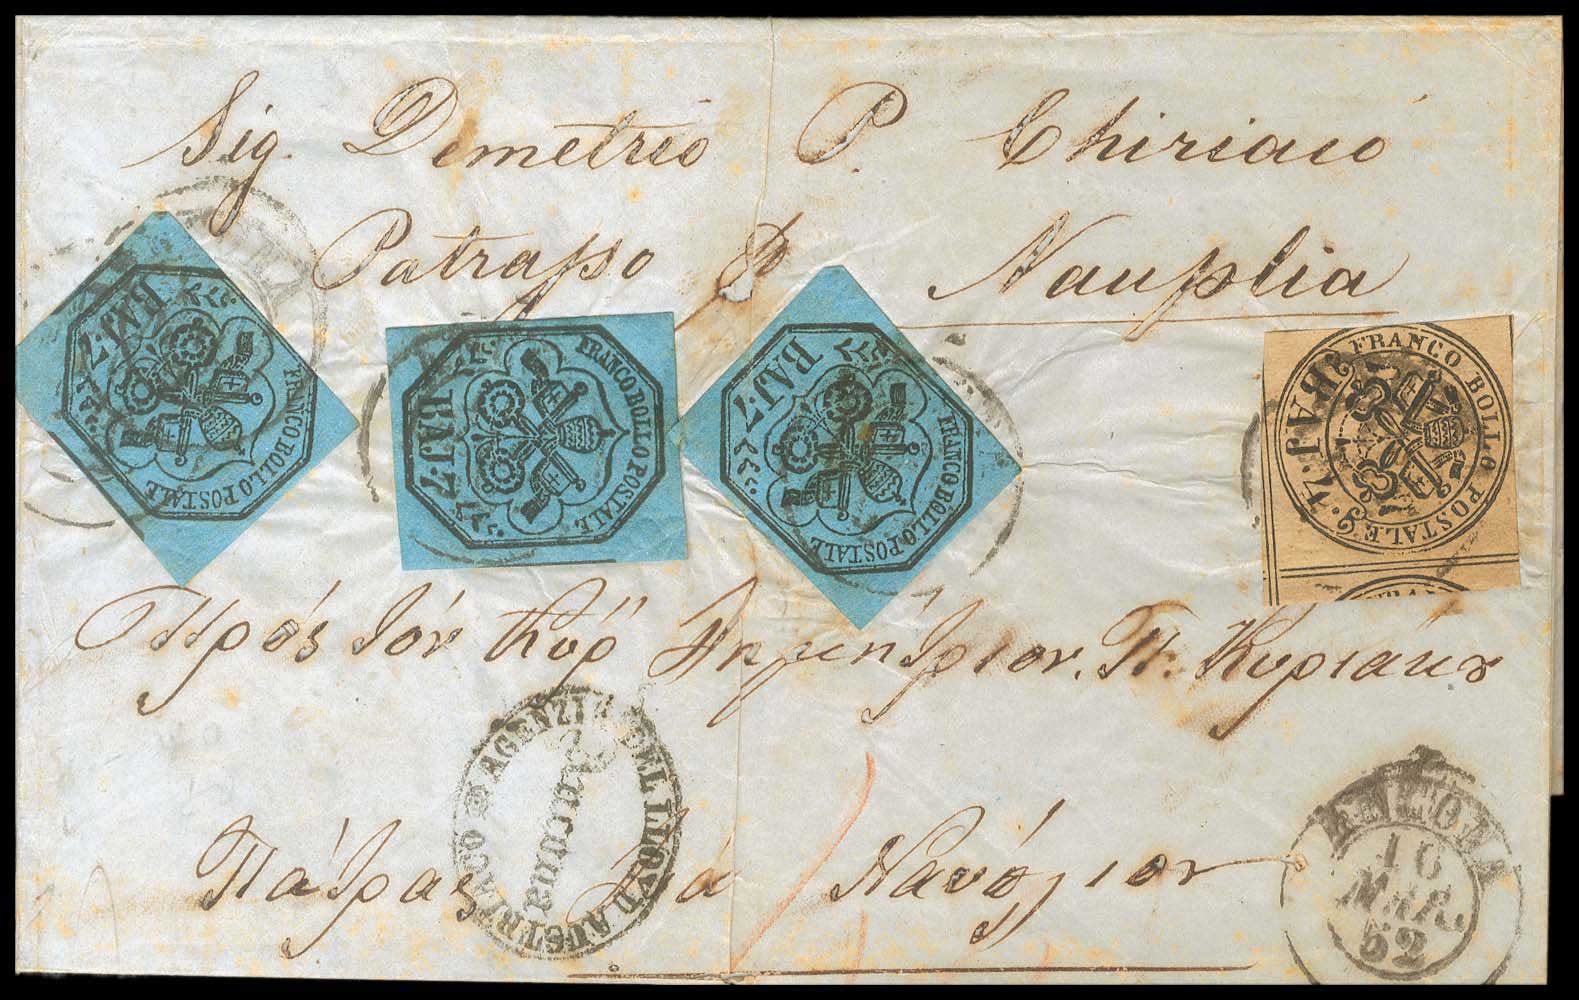 Sig. Demetrio P. Chiriacó
Patrasso p Nauplia
BAJ. 7
FRANCO BOLLO POSTALE
BAJ. 7
FRANCO BOLLO POSTALE
BAJ. 7
FRANCO BOLLO POSTALE
BAJ.
FRANCO BOLLO POSTALE
Πρός τόν Κύρ Δημήτριον. Π. Κυριάκȣ
AGENZIA DEL LLOYD AUSTRIACO
Ancona
Πάτρας διά Ναύπλιον
ANCONA
16
MAR.
52